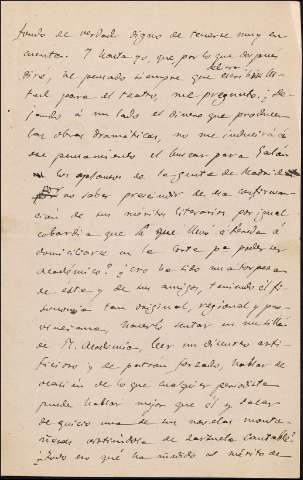 fondo de verdad digno de tenerse muy en
cuenta. Y hasta yo, que por lo que después
diré, he pensado siempre que debiera
para el teatro, me pregunto: ¿De-
jando á un lado el dinero que producen
las obras dramáticas, no me induciría á
ese pensamiento el buscar para Galán
los aplausos de la gente de Madrid
no saber prescindir de esa confirma-
ción de sus méritos literarios por igual
cobardía que la que llevó á Pereda á
domiciliarse en la Corte pa poder ser
Académico? ¿Y no ha sido una torpeza
de éste y de sus amigos, teniendo él fi-
sonomía tan original, regional y pro-
vinciana, hacerlo sentar en un sillón
R. Academia, leer un discurso arti-
ficioso y de patrón forzado, hablar
ocasión de lo que cualquier periodista
puede hablar mejor que él y sacar
de quicio una de sus novelas monta-
ñesas de zarzuela cantable?
¿Todo eso qué ha añadido al mérito de